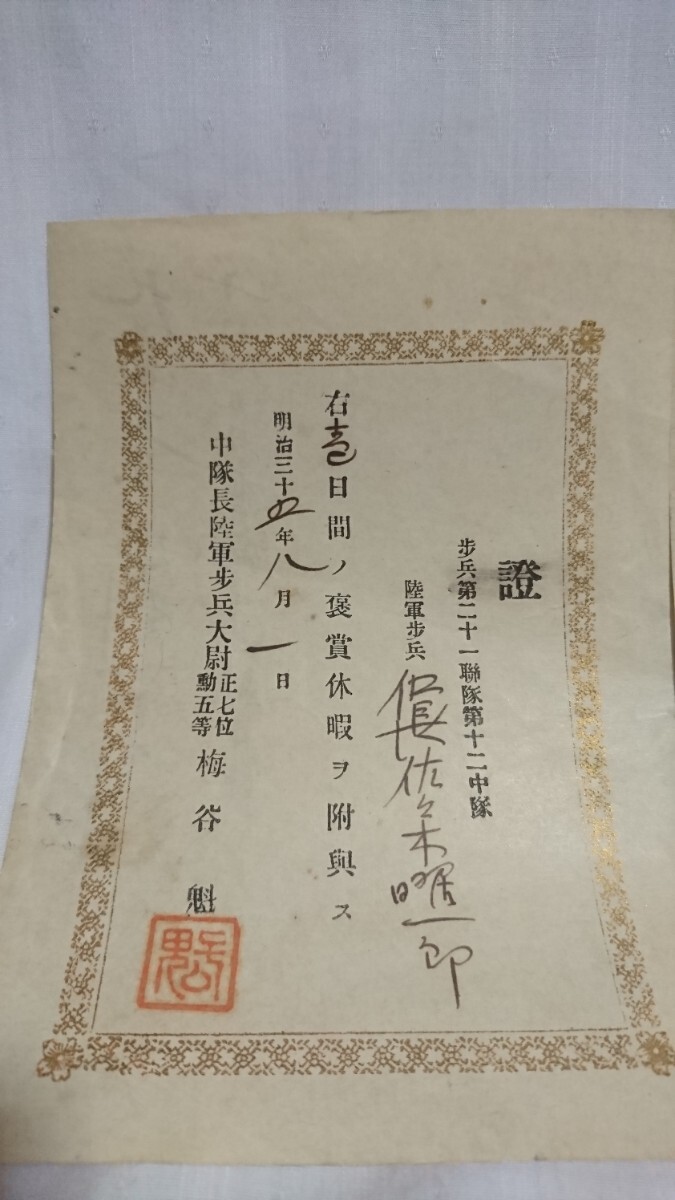 證
歩兵第二十一聯隊第十二中隊
陸軍歩兵伍長佐々木曜一郎
右壹日間ノ褒賞休暇ヲ附與ス
明治三十五年八月一日
中隊長陸軍歩兵大尉正七位勳五等梅谷魁